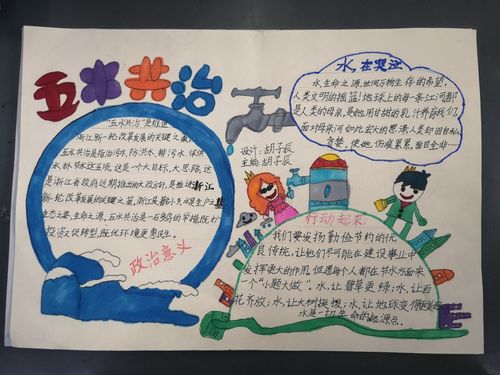 五水共治
"五水共治"是推进
浙江新一轮改革发展的关键之策。
五水共治是指治污水、防洪水、排涝水、保供
水、抓节水这五项。这是一个大目标,大思路,这
是浙江省政府近期推出的大政方针,是推进浙江
新一轮改革发展的关键之策。浙江是著名水乡,水是生产之基
生态之要,生命之源,五水共治是一石多鸟的举措,既扩
投资又促转型,既优环境更惠民生。
政治意义
设计:胡子辰
主编:胡子辰
水在哭泣
水,生命之源,世间万物生存的希望,
人类文明的摇篮!地球上的每一条江河都
是人类的母亲,是她用甘甜的乳汁养育我们,
面对母亲河如此宏大的恩泽,人类却因自私
贪婪,使她伤痕累累,面目全非……
行动起来:
我们要发扬勤俭节约的优
良传统,让他们尽可能在建设事业中
发挥更大的作用,但愿每个人都在节水方面来
一个"小题大做"。水,让碧草更绿;水,让百
花齐放;水,让大树挺拔;水,让地球变得更美丽
水是一切生命的起源点。